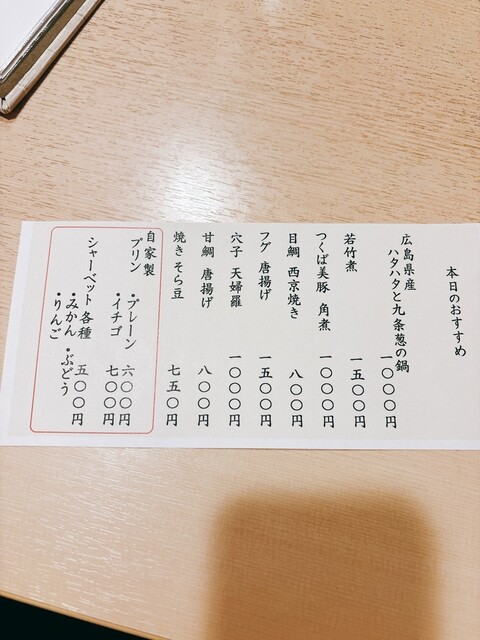 本日のおすすめ
広島県産
ハタハタと九条葱の鍋
一〇〇〇円
若竹煮 一五〇〇円
つくば美豚 角煮 一〇〇〇円
目鯛 西京焼き 八〇〇円
フグ 唐揚げ 一五〇〇円
穴子 天婦羅 一〇〇〇円
甘鯛 唐揚げ 八〇〇円
焼きそら豆 七五〇円
自家製
プリン
・プレーン 六〇〇円
・イチゴ 七〇〇円
シャーベット 各種 五〇〇円
・みかん ・ぶどう
・りんご